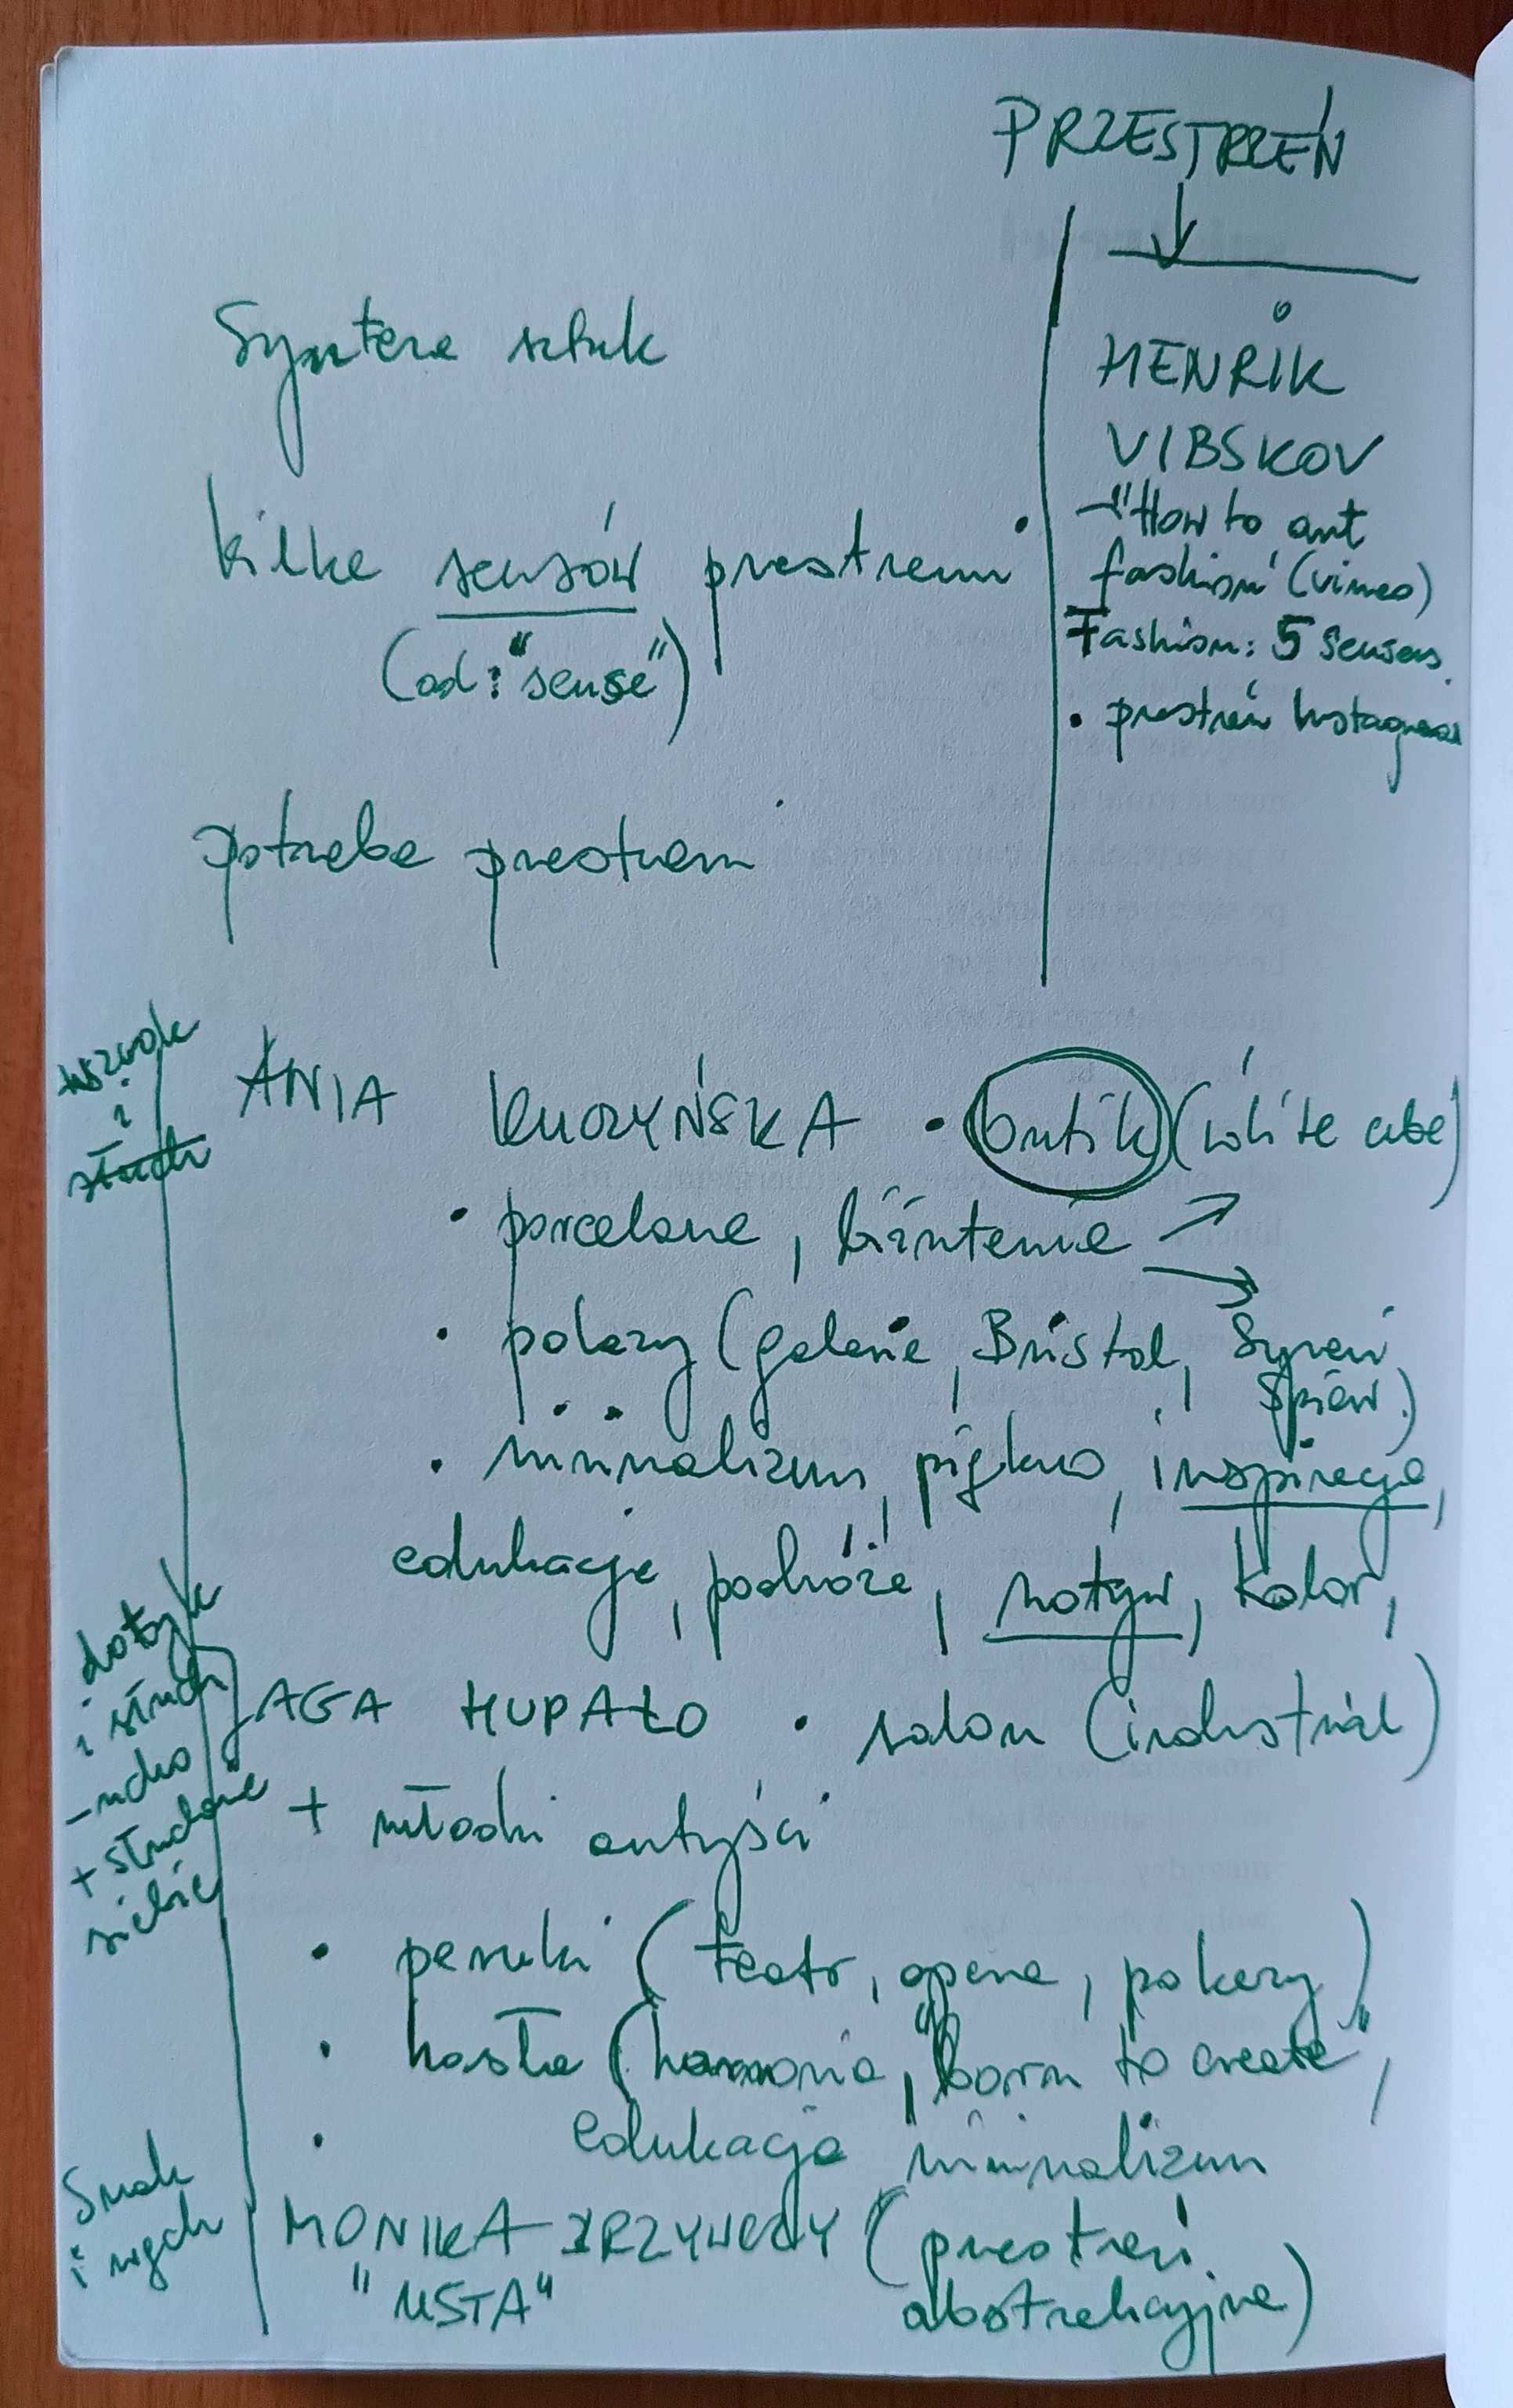 PRZESTRZEŃ
Synteza sztuk
kilka sensów przestrzeni
(od: "sense")
potrzeba przestrzeni
HENRIK
VIBSKOV
- "How to art
fashion" (vimeo)
Fashion: 5 senses.
• przestrzeń Instagrama
wzrok
i
słuch
ANIA KUCZYŃSKA • butik (white cube)
• porcelana, biżuteria
• pokazy (galerie, Bristol, Syreni
śpiew)
• minimalizm, piękno, inspiracje,
edukacja, podróże, motyw, kolor,
dotyk
i słuch
- ucho
+ słuchanie
siebie
JAGA HUPAŁO • salon (industrial)
+ młodzi artyści
• peruki (teatr, opera, pokazy)
• hasła (harmonia, "born to create",
• edukacja minimalizm
Smak
i węch
MONIKA KRZYWDY (przestrzeń
"USTA" abstrakcyjna)